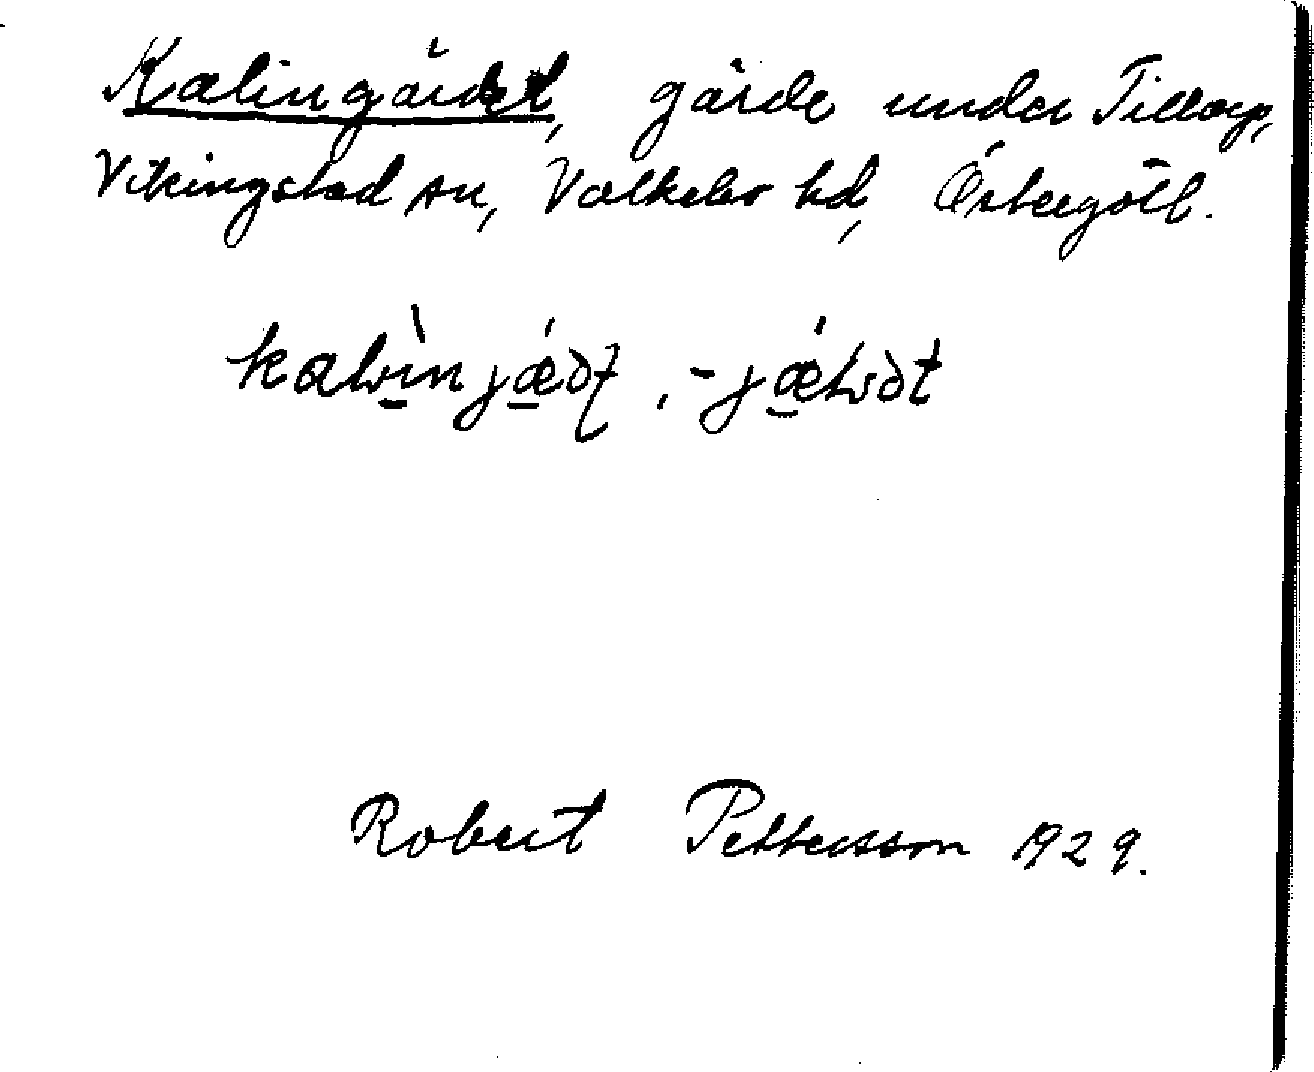 Kalingärdet, gärde under Tillorp,
Vikingstad sn, Valkebo hd, Östergötl.
Robert Pettersson 1929.